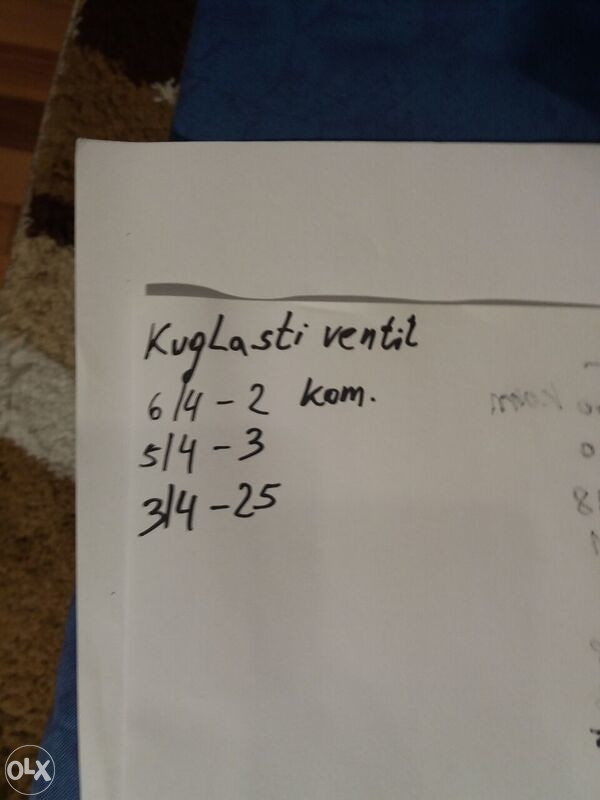 Kuglasti ventil
6/4 - 2 kom.
5/4 - 3
3/4 - 25
OLX